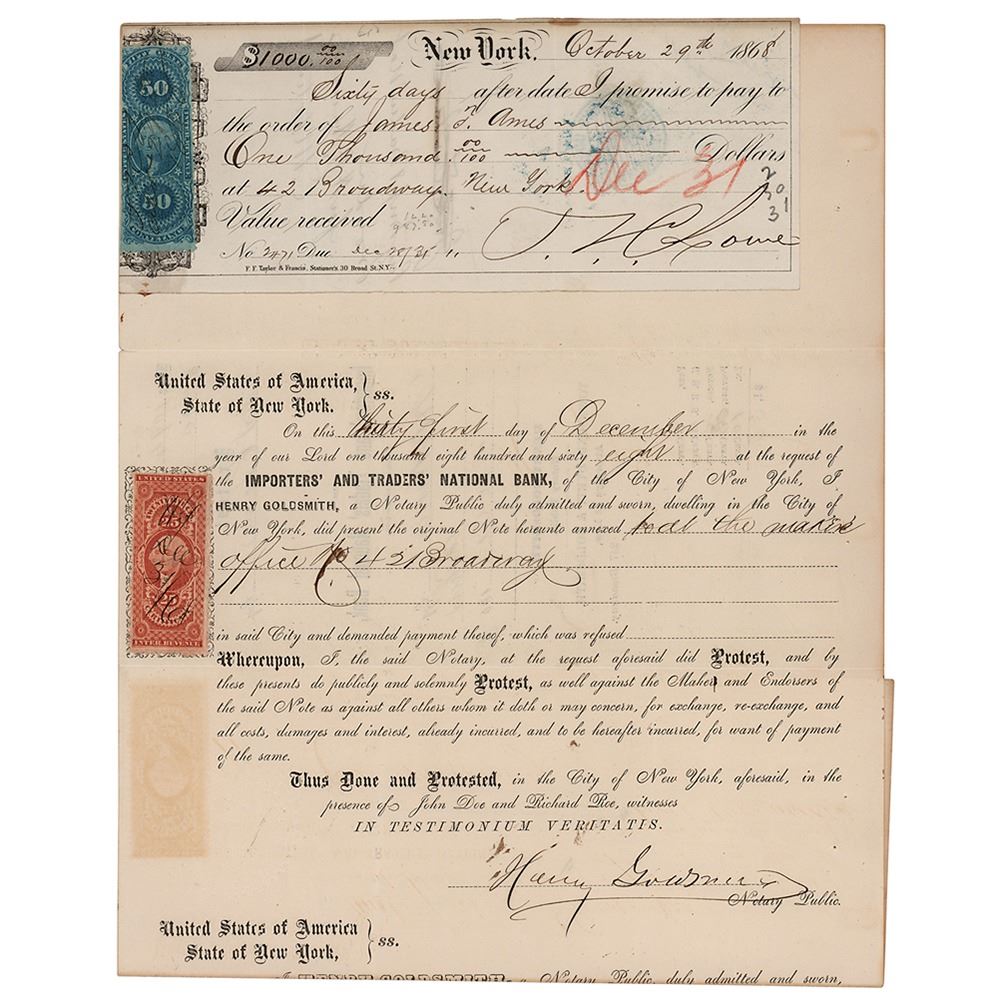 $1000. 00/100 New York. October 29th 1868
Sixty days after date I promise to pay to
the order of James T. Ames
One Thousand 00/100 Dollars
at 42 Broadway New York
Dec 31
Value received
T. S. C. Lowe
No 247, Due Dec 28/31
F. F. Taylor & Francis, Stationer's 30 Broad St. N.Y.
50
50
CONVEYANCE
United States of America,
State of New York. } ss.
On this thirty first day of December in the
year of our Lord one thousand eight hundred and sixty eight at the request of
the IMPORTERS' AND TRADERS' NATIONAL BANK, of the City of New York, I
HENRY GOLDSMITH, a Notary Public duly admitted and sworn, dwelling in the City of
New York, did present the original Note hereunto annexed, at the makers
office No 42 Broadway
in said City and demanded payment thereof, which was refused
Whereupon, I, the said Notary, at the request aforesaid did Protest, and by
these presents do publicly and solemnly Protest, as well against the Maker and Endorsers of
the said Note as against all others whom it doth or may concern, for exchange, re-exchange, and
all costs, damages and interest, already incurred, and to be hereafter incurred, for want of payment
of the same.
Thus Done and Protested, in the City of New York, aforesaid, in the
presence of John Doe and Richard Roe, witnesses
IN TESTIMONIUM VERITATIS.
Henry Goldsmith
Notary Public.
UNITED STATES
25
25
INTER. REVENUE
Dec
31/68
United States of America
State of New York, } ss.
I HENRY GOLDSMITH, a Notary Public, duly admitted and sworn,